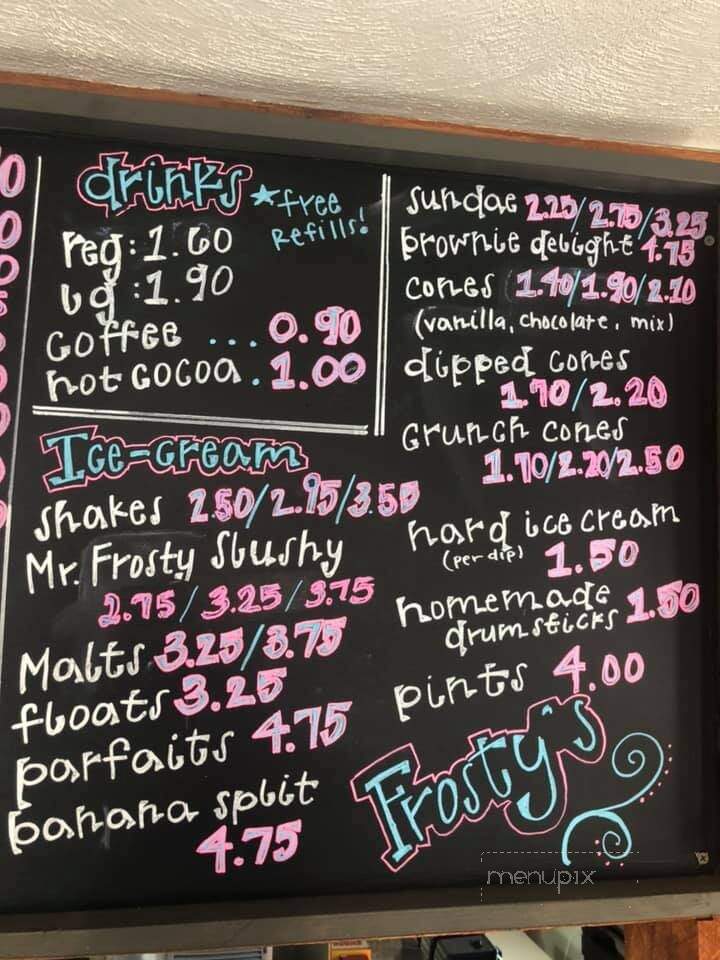 drinks
*free
Refills!
reg: 1.60
lg: 1.90
coffee ... 0.90
hot cocoa . 1.00
Ice-cream
shakes 2.50/2.95/3.55
Mr. Frosty Slushy
2.75/3.25/3.75
Malts 3.25/3.75
floats 3.25
parfaits 4.75
banana split
4.75
sundae 2.25/2.75/3.25
brownie delight 4.75
cones 1.40/1.90/2.10
(vanilla, chocolate, mix)
dipped cones
1.70/2.20
crunch cones
1.70/2.20/2.50
hard ice cream
(per dip) 1.50
homemade
drumsticks 1.50
pints 4.00
Frosty's
menupix